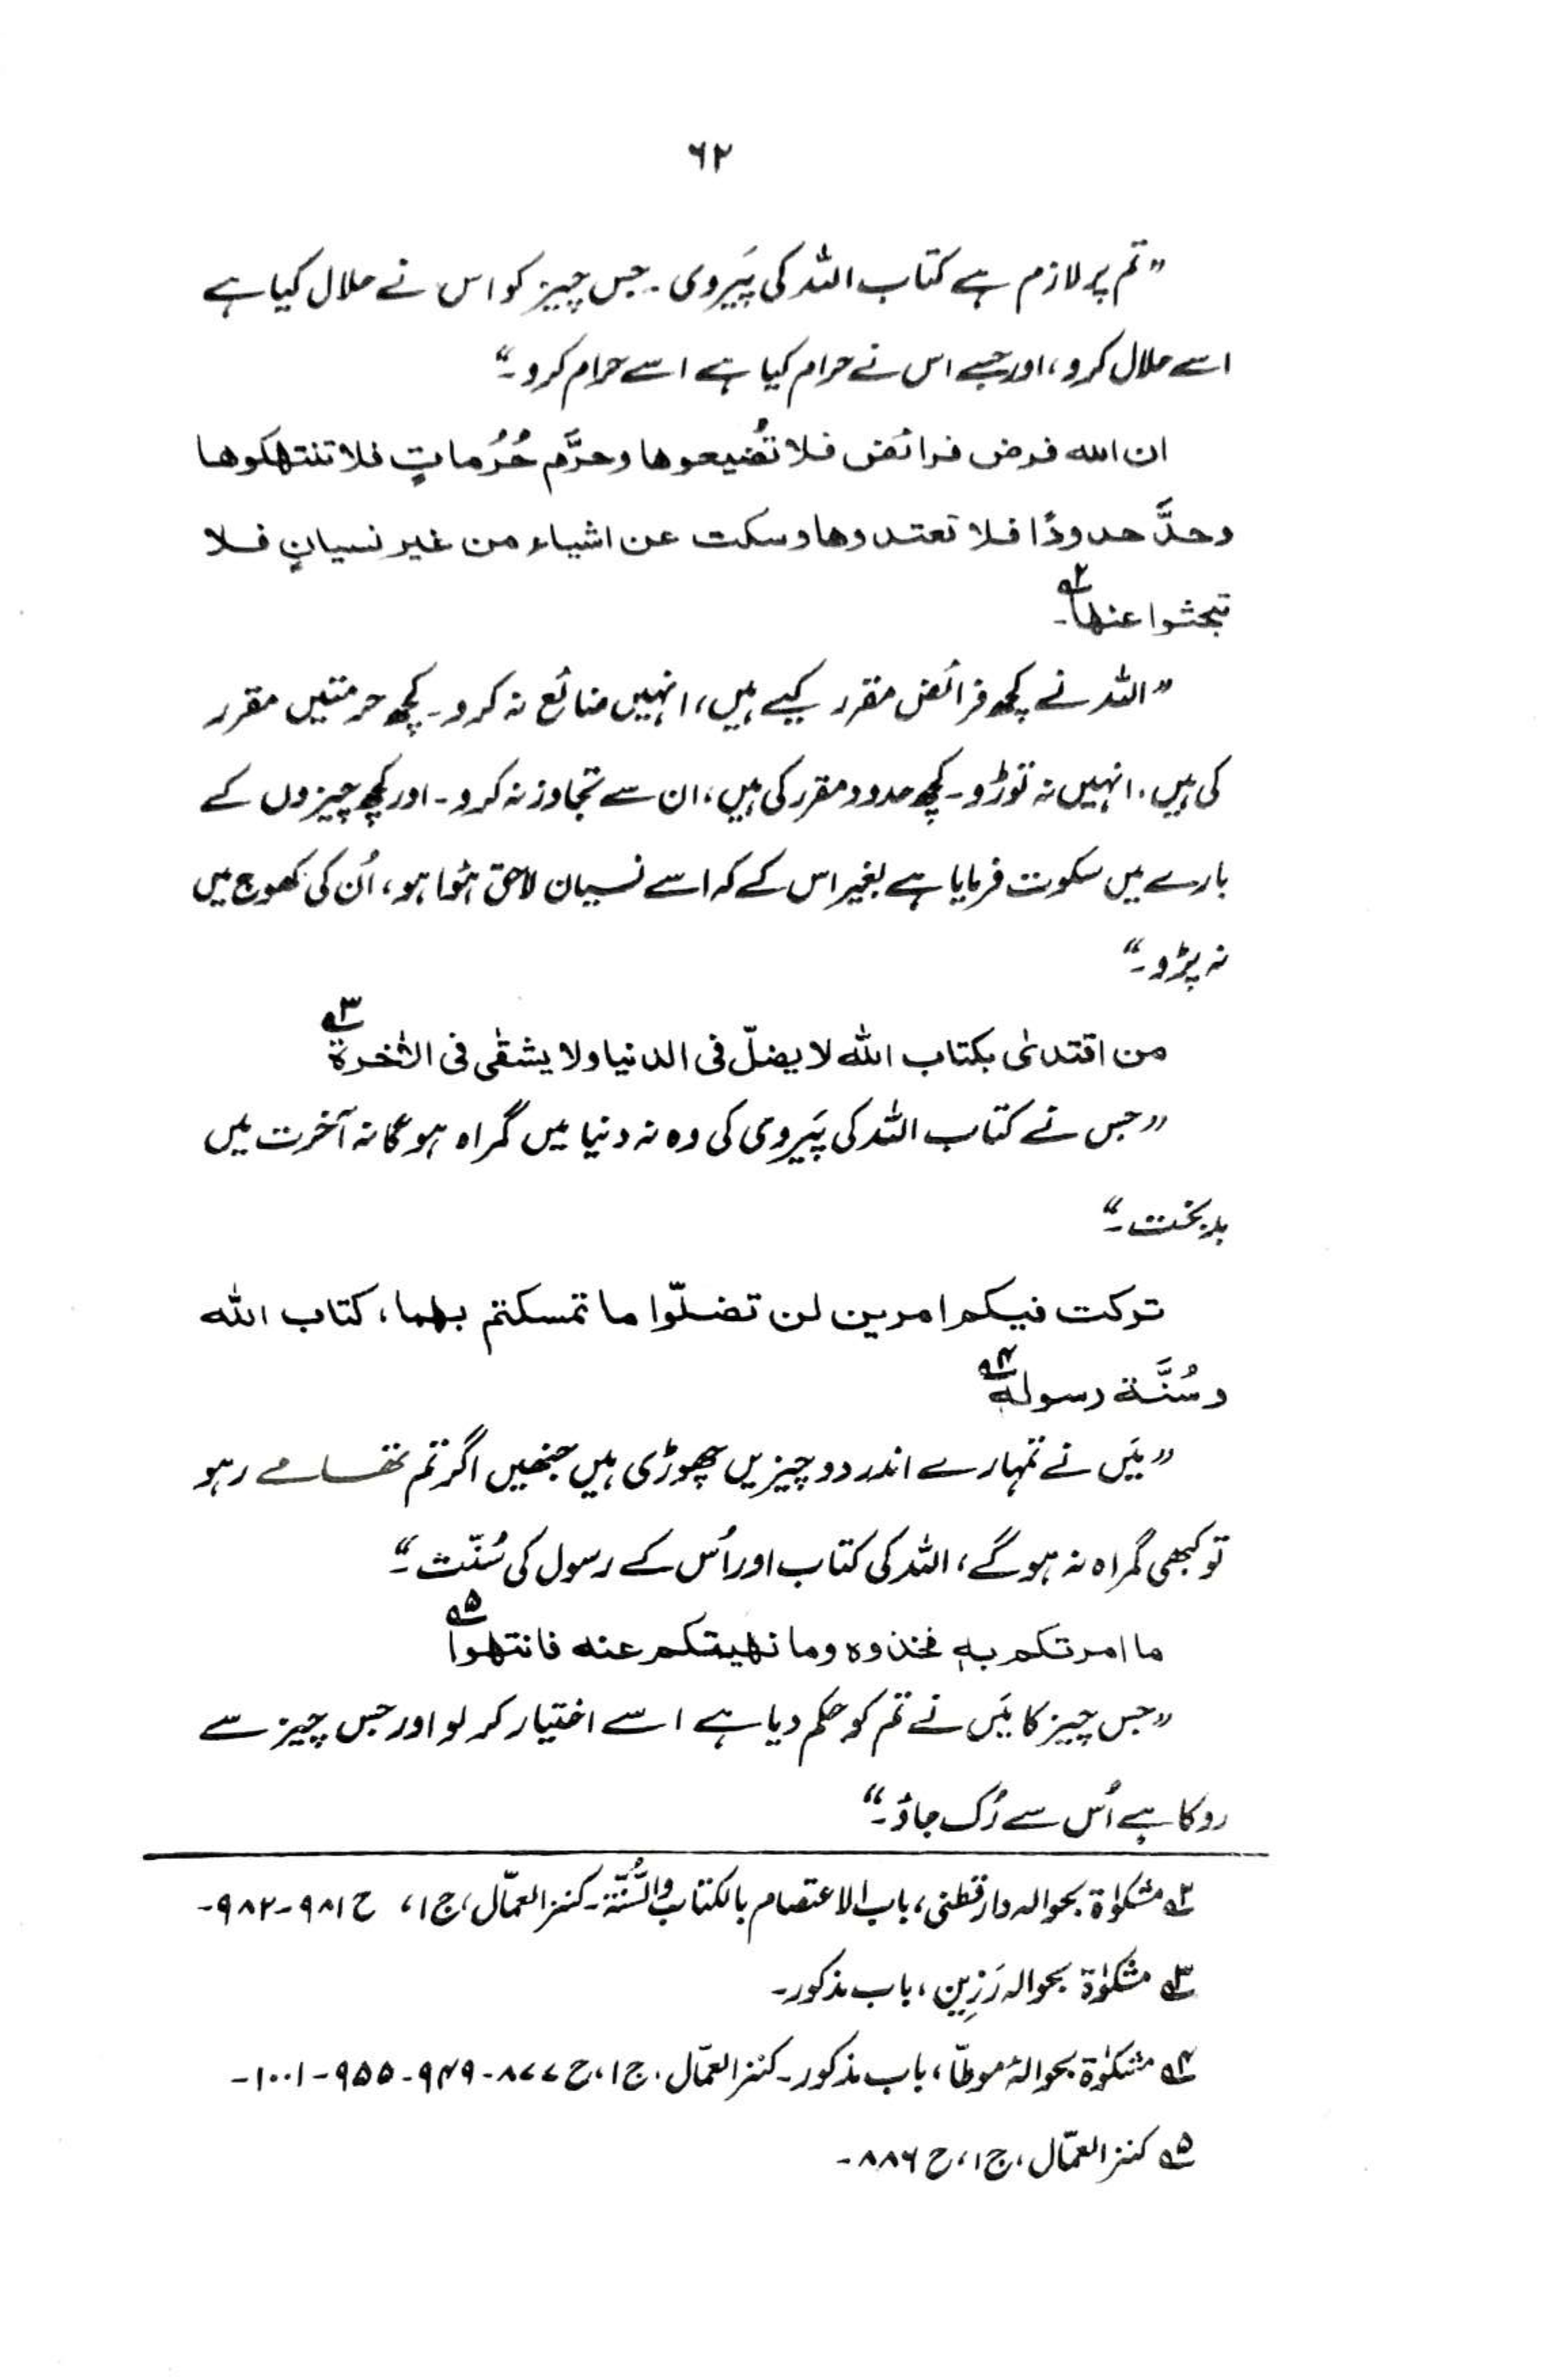 ۶۲
”تم پر لازم ہے کتاب اللہ کی پَیروی۔ جس چیز کو اس نے حلال کیا ہے
اسے حلال کرو، اور جسے اس نے حرام کیا ہے اسے حرام کرو۔“
ان الله فرض فرائض فلا تُضیعوها وحرَّم حُرُماتٍ فلا تنتهكوها
وحدَّ حدودًا فلا تعتدوها وسكت عن اشیاء من غیر نسیانٍ فلا
تبحثوا عنها۲؎۔
”اللہ نے کچھ فرائض مقرر کیے ہیں، انہیں ضائع نہ کرو۔ کچھ حرمتیں مقرر
کی ہیں، انہیں نہ توڑو۔ کچھ حدود مقرر کی ہیں، ان سے تجاوز نہ کرو۔ اور کچھ چیزوں کے
بارے میں سکوت فرمایا ہے بغیر اس کے کہ اسے نسیان لاحق ہُوا ہو، اُن کی کھوج میں
نہ پڑو۔“
من اقتدىٰ بكتاب الله لا یضلّ فی الدنیا ولا یشقٰی فی الاٰخرة۳؎
”جس نے کتاب اللہ کی پَیروی کی وہ نہ دنیا میں گمراہ ہوگا نہ آخرت میں
بدبخت۔“
تركت فیكم امرین لن تضلّوا ما تمسكتم بهما، كتاب الله
وسُنَّة رسوله۴؎
”مَیں نے تمہارے اندر دو چیزیں چھوڑی ہیں جنھیں اگر تم تھامے رہو
تو کبھی گمراہ نہ ہوگے، اللہ کی کتاب اور اُس کے رسول کی سُنّت۔“
ما امرتكم بهٖ فخذوه وما نهیتكم عنه فانتهوا۵؎
”جس چیز کا مَیں نے تم کو حکم دیا ہے اسے اختیار کر لو اور جس چیز سے
روکا ہے اُس سے رُک جاؤ۔“
۲؎ مشکوٰۃ بحوالہ دارقطنی، باب الاعتصام بالکتاب والسُّنّۃ۔ کنز العمّال، ج ۱، ح ۹۸۱-۹۸۲-
۳؎ مشکوٰۃ بحوالہ رَزِین، باب مذکور۔
۴؎ مشکوٰۃ بحوالۂ موطّا، باب مذکور۔ کنز العمّال، ج ۱، ح ۸۷۷-۹۴۹-۹۵۵-۱۰۰۱-
۵؎ کنز العمّال، ج ۱، ح ۸۸۶-